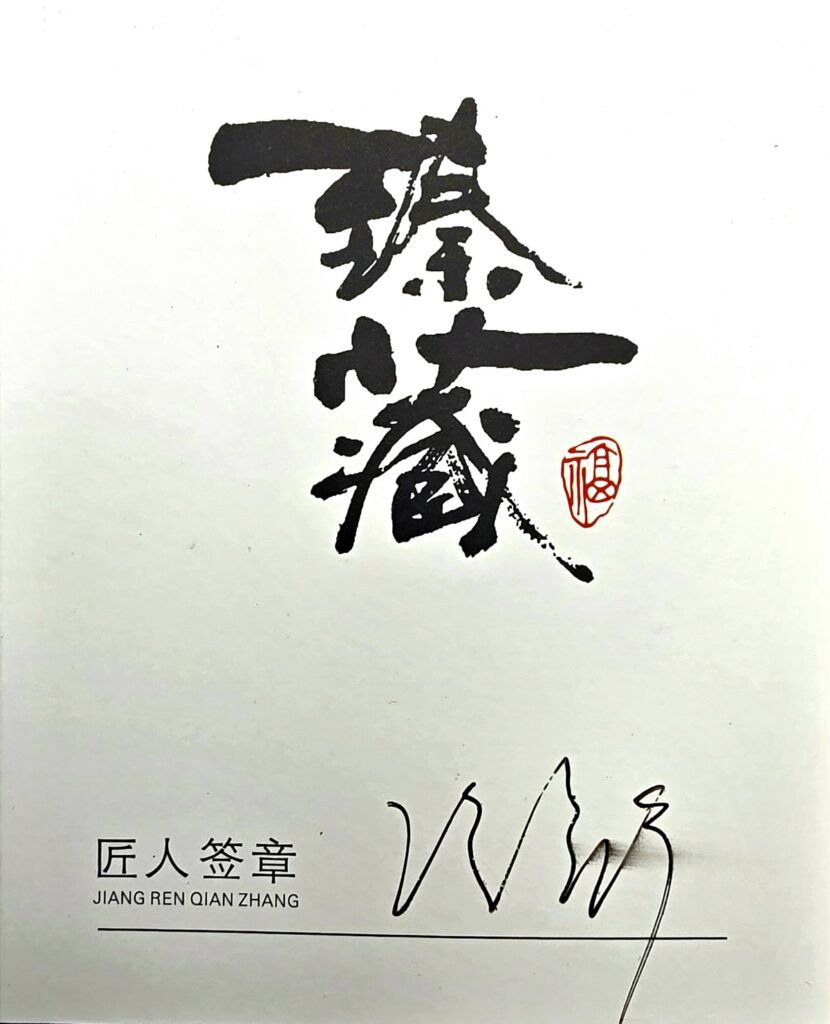 臻藏
福
匠人签章
JIANG REN QIAN ZHANG